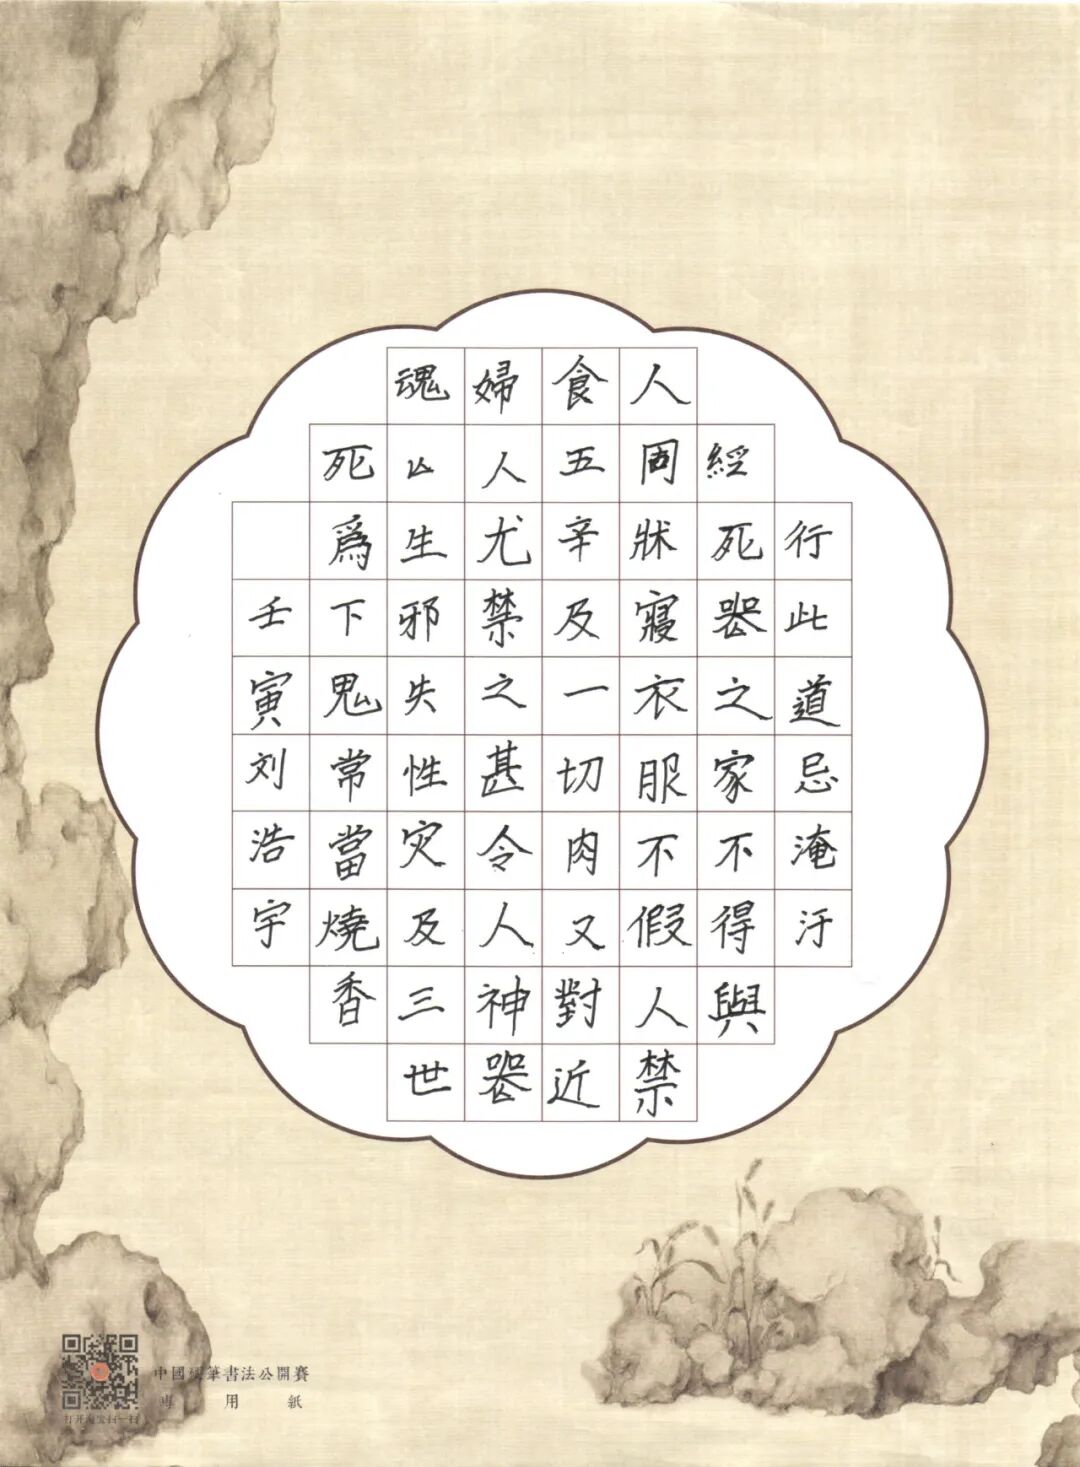 行此道忌淹汙
經死喪之家不得與
人同牀寢衣服不假人禁
食五辛及一切肉又對近
婦人尤禁之甚令人神喪
魂亾生邪失性灾及三世
死爲下鬼常當燒香
壬寅刘浩宇
中國硬筆書法公開賽
專用紙
打开淘宝扫一扫